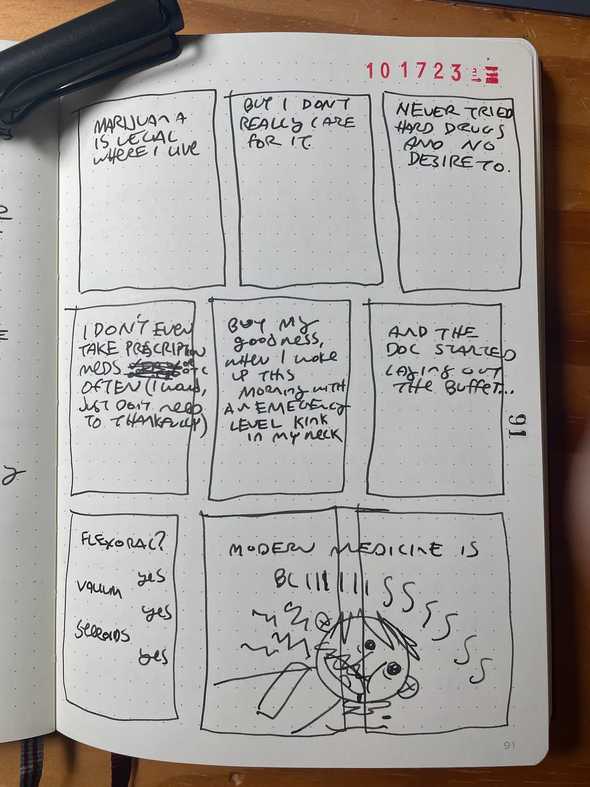 101723
MARIJUANA
IS LEGAL
WHERE I LIVE
BUT I DON'T
REALLY CARE
FOR IT.
NEVER TRIED
HARD DRUGS
AND NO
DESIRE TO.
I DON'T EVEN
TAKE PRESCRIPTION
MEDS OR OTC
OFTEN (I would,
JUST DON'T NEED
TO THANKFULLY)
BUT MY
goodness,
WHEN I WOKE
UP THIS
MORNING WITH
AN EMERGENCY
LEVEL KINK
IN MY NECK
AND THE
DOC STARTED
LAYING OUT
THE BUFFET...
91
FLEXORAL?
yes
VALIUM
yes
STEROIDS
yes
MODERN MEDICINE IS
BLIIIIIISSSSSS
91